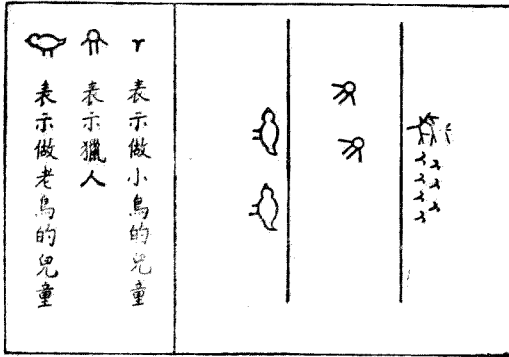 表示做小鳥的兒童
表示獵人
表示做老鳥的兒童